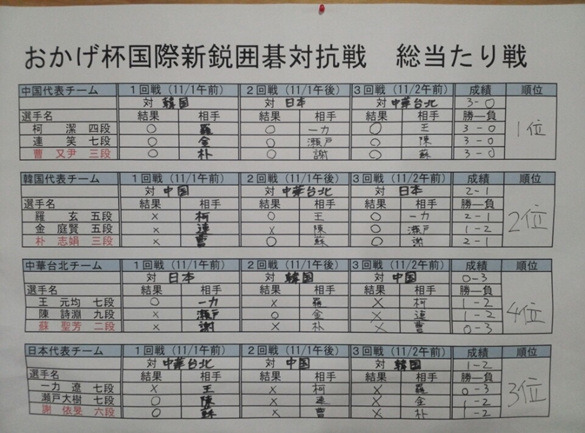 おかげ杯国際新鋭囲碁対抗戦 総当たり戦
中国代表チーム 1回戦 (11/1午前) 2回戦 (11/1午後) 3回戦 (11/2午前) 成績 順位
対 韓国 対 日本 対 中華台北 3-0 1位
選手名 結果 相手 結果 相手 結果 相手 勝ー負
柯 潔 四段 ○ 羅 ○ 一力 ○ 王 3-0
連 笑 七段 ○ 金 ○ 瀬戸 ○ 陳 3-0
曹 又尹 三段 ○ 朴 ○ 謝 ○ 蘇 3-0
韓国代表チーム 1回戦 (11/1午前) 2回戦 (11/1午後) 3回戦 (11/2午前) 成績 順位
対 中国 対 中華台北 対 日本 2-1 2位
選手名 結果 相手 結果 相手 結果 相手 勝ー負
羅 玄 五段 × 柯 ○ 王 ○ 一力 2-1
金 庭賢 五段 × 連 × 陳 ○ 瀬戸 1-2
朴 志娟 三段 × 曹 ○ 蘇 ○ 謝 2-1
中華台北チーム 1回戦 (11/1午前) 2回戦 (11/1午後) 3回戦 (11/2午前) 成績 順位
対 日本 対 韓国 対 中国 0-3 4位
選手名 結果 相手 結果 相手 結果 相手 勝ー負
王 元均 七段 ○ 一力 × 羅 × 柯 1-2
陳 詩淵 九段 × 瀬戸 ○ 金 × 連 1-2
蘇 聖芳 二段 × 謝 × 朴 × 曹 0-3
日本代表チーム 1回戦 (11/1午前) 2回戦 (11/1午後) 3回戦 (11/2午前) 成績 順位
対 中華台北 対 中国 対 韓国 1-2 3位
選手名 結果 相手 結果 相手 結果 相手 勝ー負
一力 遼 七段 × 王 × 柯 × 羅 0-3
瀬戸大樹 七段 ○ 陳 × 連 × 金 1-2
謝 依旻 六段 ○ 蘇 × 曹 × 朴 1-2